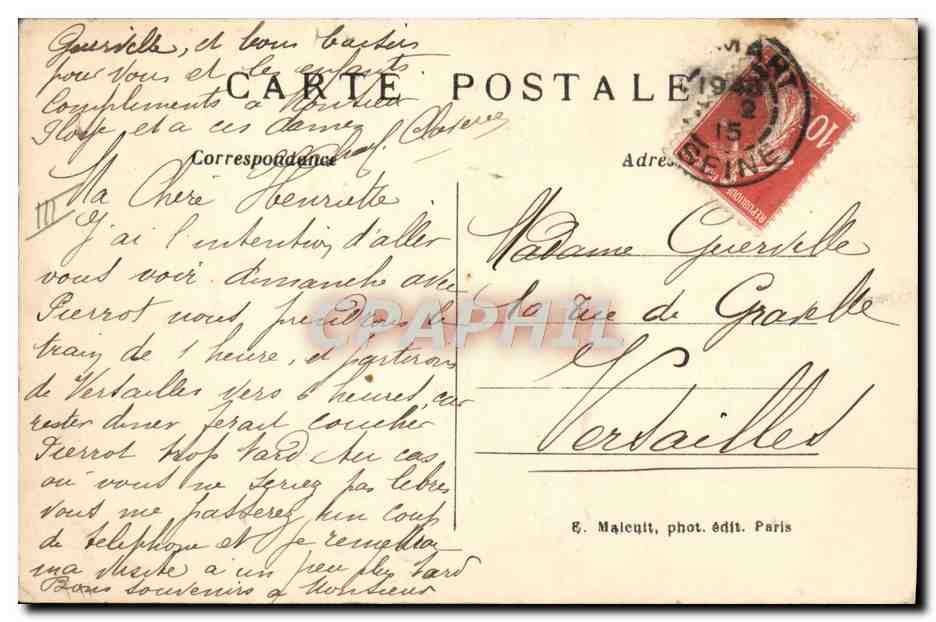 Guerville, et bons baisers
pour vous et les enfants
Compliments à Monsieur
et a ces dames
CARTE POSTALE
Correspondance
Adres
MART
19
2
15
SEINE
10
REPUBLIQUE
III
Ma Chère Henriette
J'ai l'intention d'aller
vous voir dimanche avec
Pierrot nous prendrons le
train de 1 heure, et partirons
de Versailles vers 6 heures, car
rester diner ferait coucher
Pierrot trop tard Au cas
où vous ne seriez pas libres
vous me passerez un coup
de telephone et je remettrai
ma visite à un peu plus tard
Bons souvenirs à Monsieur
Madame Guerville
la rue de Gravelle
Versailles
CPAPHIL
E. Malcuit, phot. édit. Paris